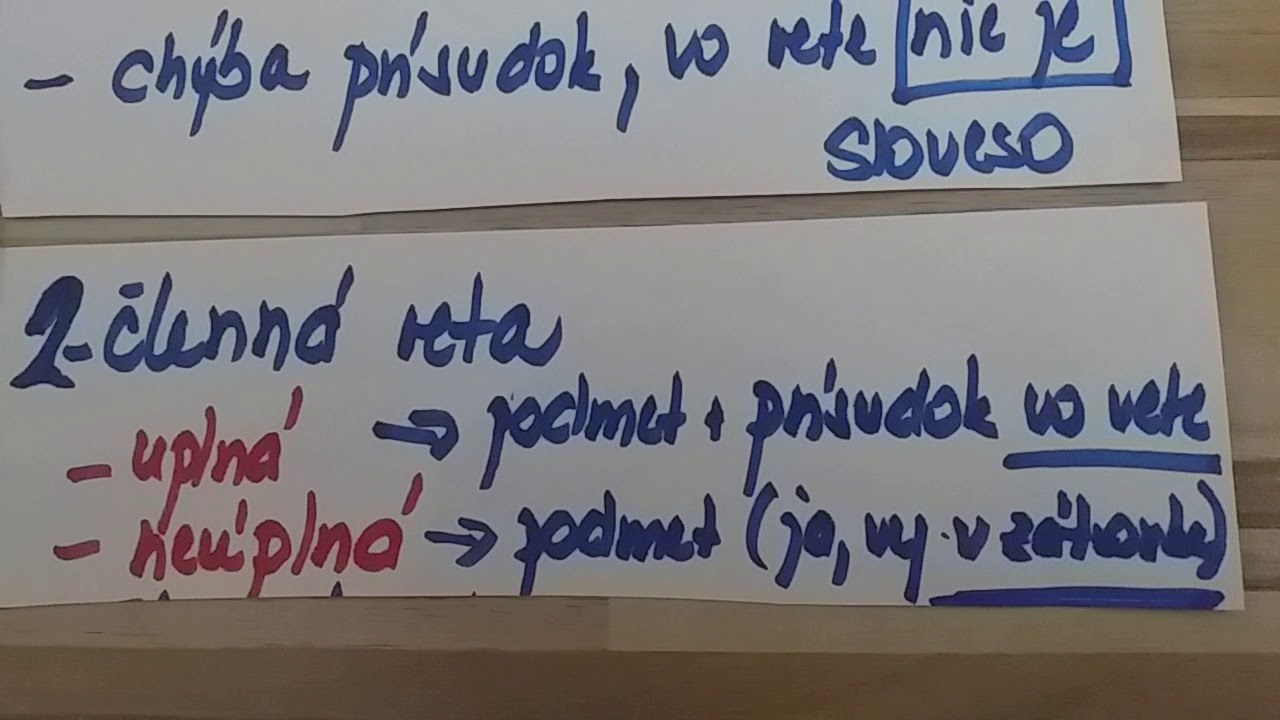 - chýba prísudok, vo vete nie je
sloveso
2-členná veta
- uplná → podmet + prísudok vo vete
- neúplná → podmet (ja, vy. v zátvorke)